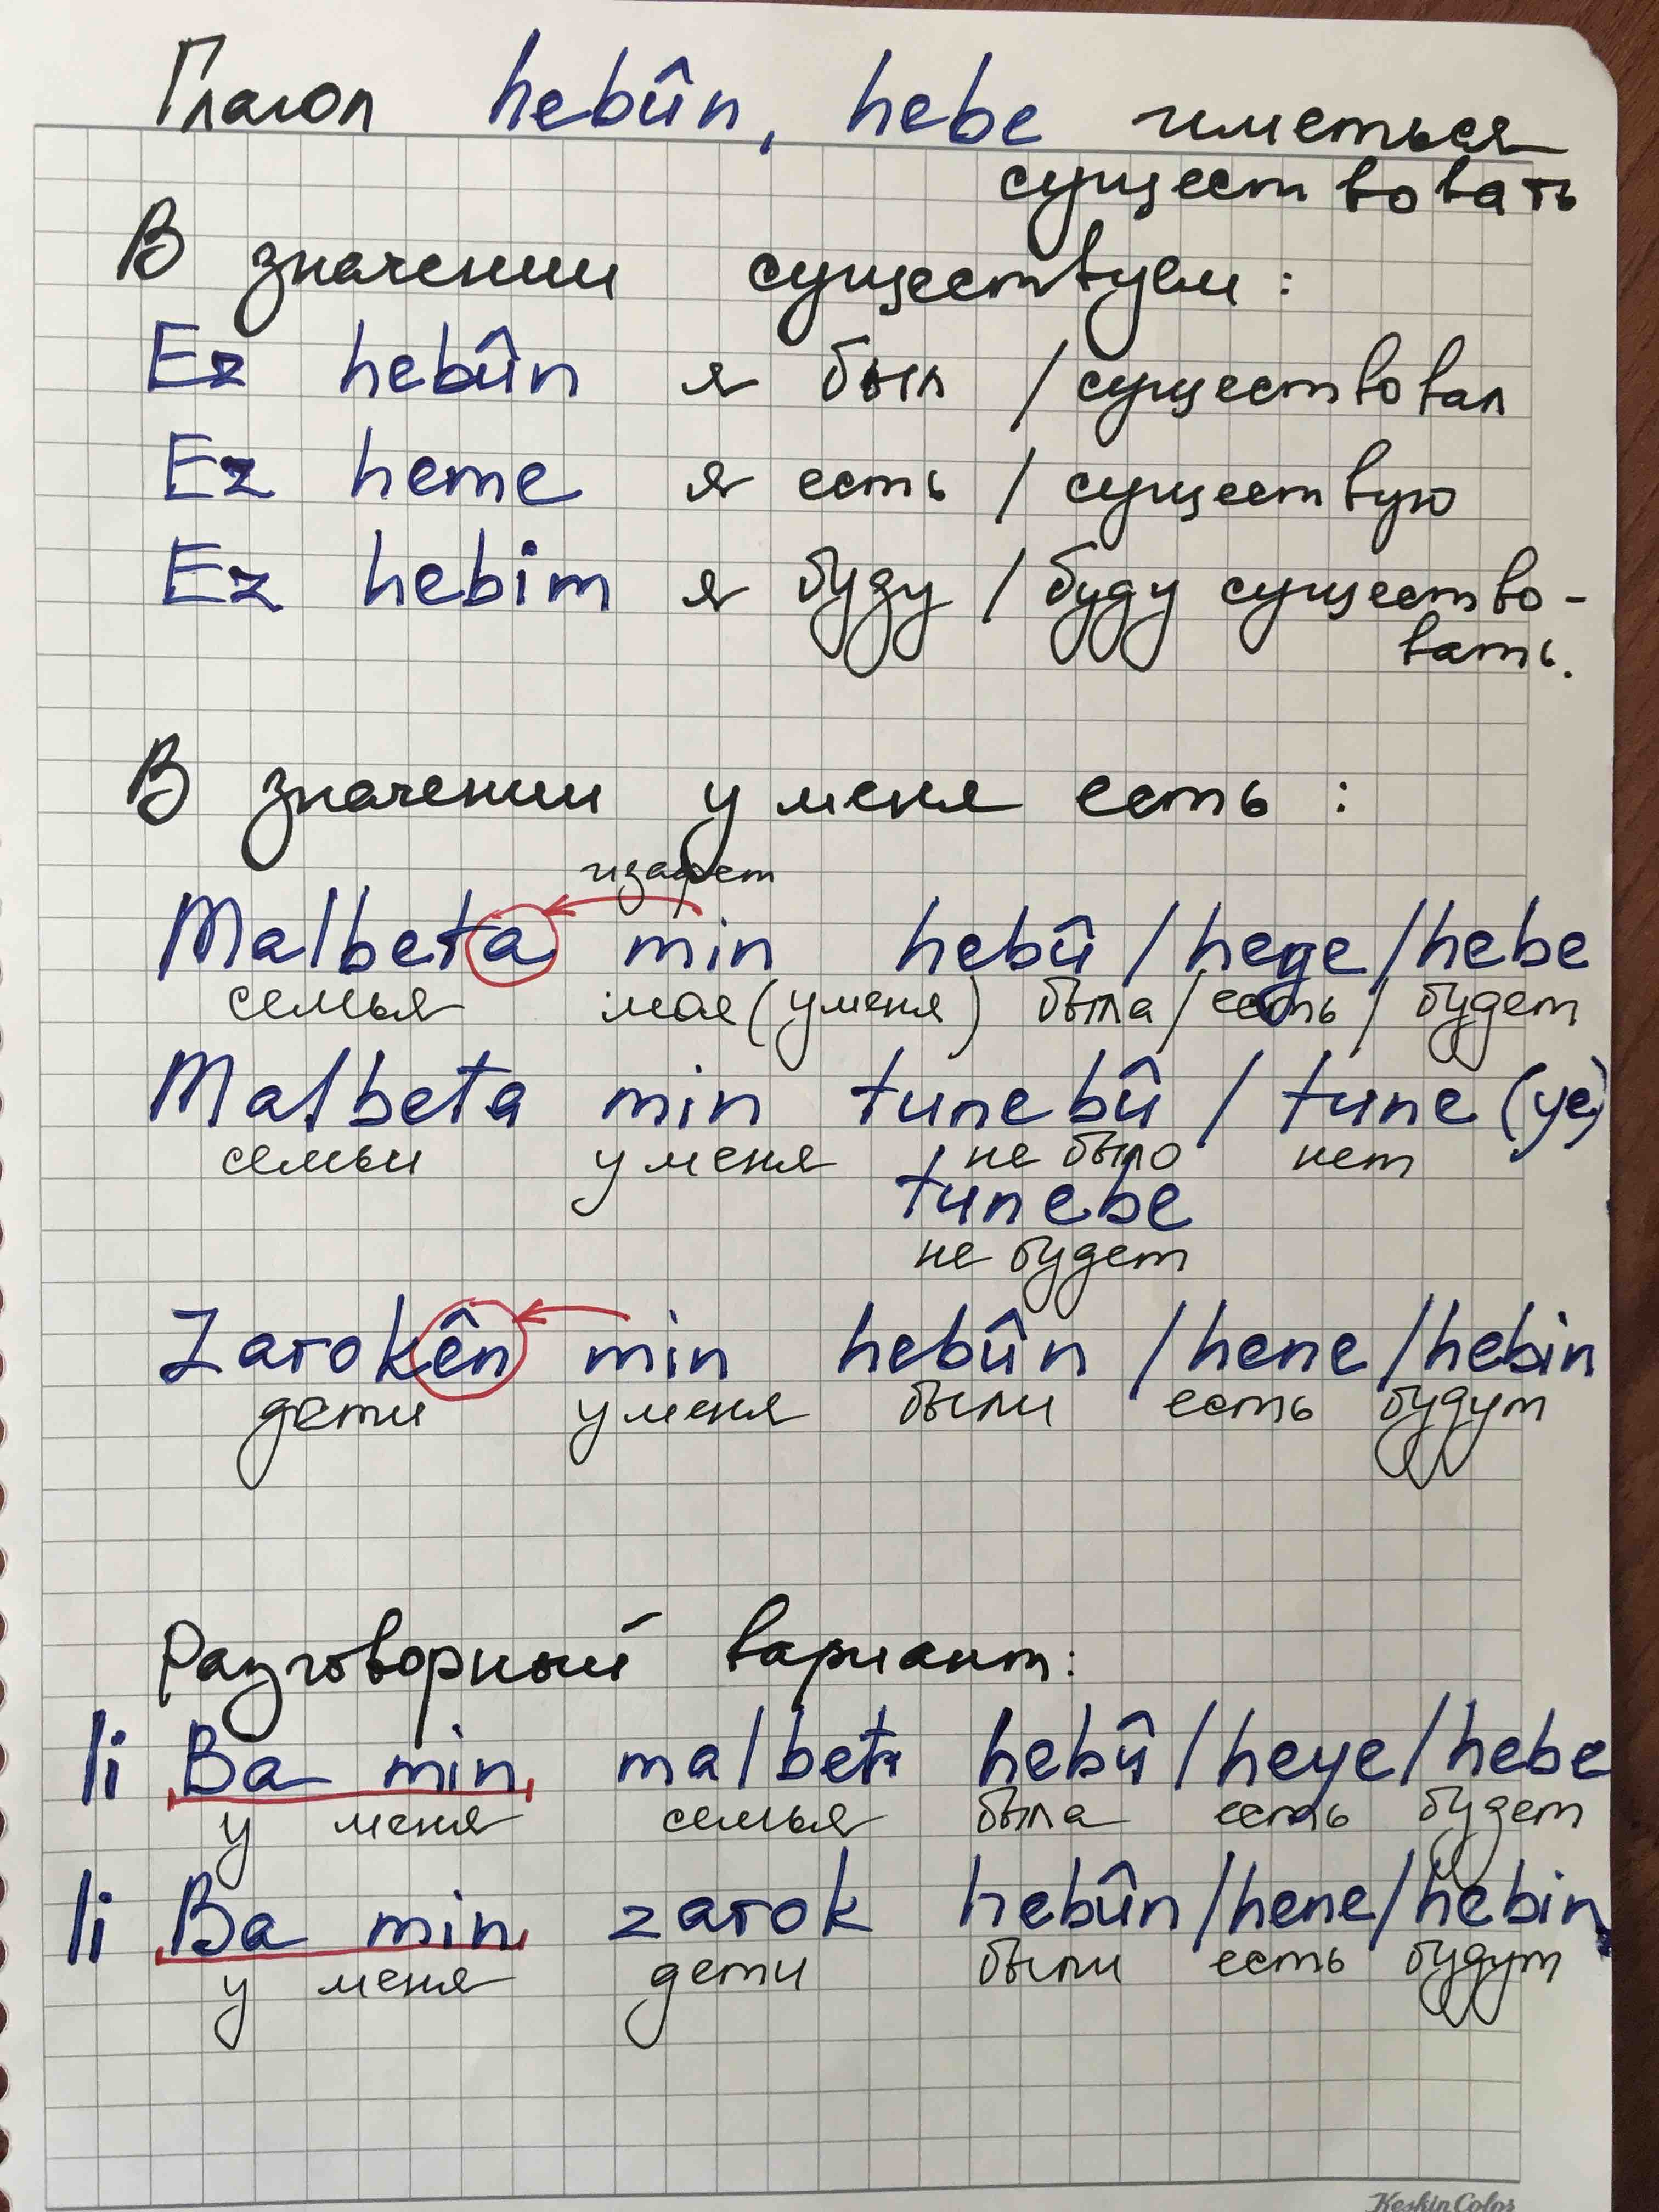 Глагол hebûn, hebe иметься
существовать
В значении существуем:
Ez hebûn я был / существовал
Ez heme я есть / существую
Ez hebim я буду / буду существо-
вать.
В значении у меня есть :
изафет
Malbeta min hebû / heye / hebe
семья моя (у меня) была / есть / будет
Malbeta min tunebû / tune (ye)
семьи у меня не было нет
tunebe
не будет
Zarokên min hebûn / hene / hebin
дети у меня были есть будут
Разговорный вариант:
li Ba min malbet hebû / heye / hebe
у меня семья была есть будет
li Ba min zarok hebûn / hene / hebin
у меня дети были есть будут
KeskinColor